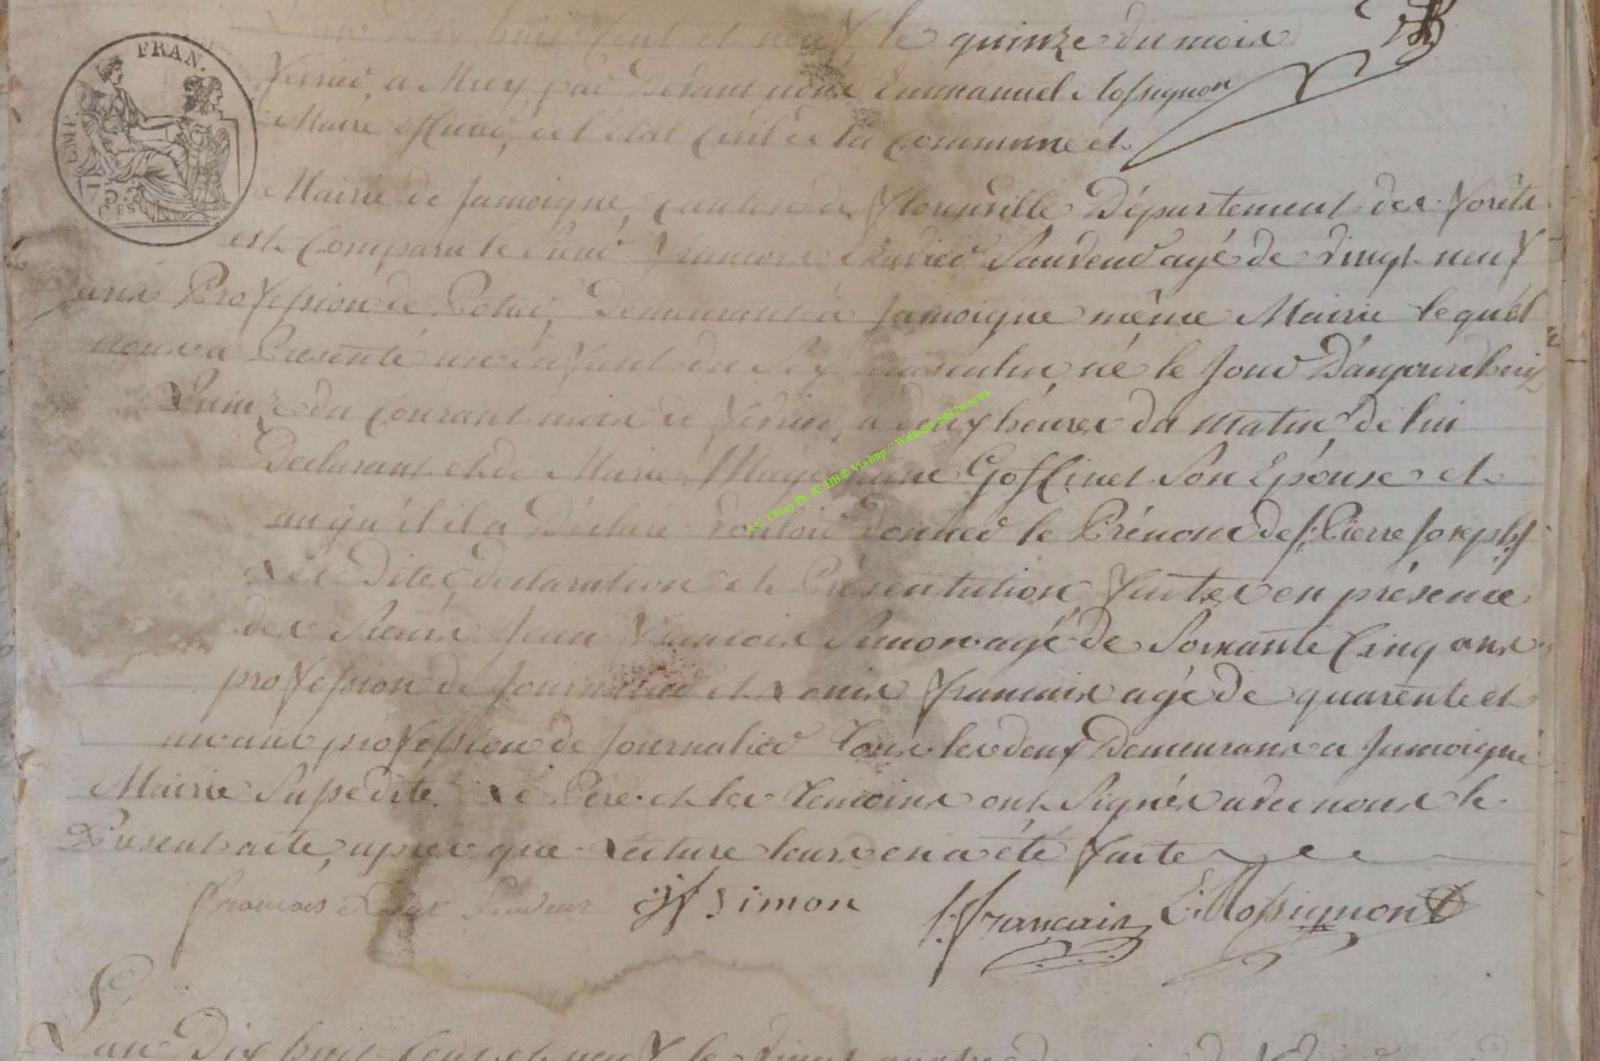 L'an Dix huit Cent et neuf le quinze du mois
fevrier, a Midy par devant nous Emmanuel Mossignon
Maire officier de l'etat Civil de la Commune et
Mairie de Jamoigne, Canton de Florenville Département des forêts
est Comparu le Sieur francois Xavier Sauveur agé de vingt neuf
ans Profession de Potier, Demeurant a Jamoigne même Mairie lequel
nous a Presenté un enfant du Sex masculin, né le Jour D'aujourdhuij
Quinze du Courant mois de fevrier, a deux heures du matin, de lui
Declarant et de Marie Goffinet Son Epouse et
auquel il a Déclaré vouloir donner le Prénom de Pierre Joseph
Les dites declaration et Présentation faites en présence
des Sieurs Jean François Simon agé de Soixante Cinq ans
profession de Journalier et Louis francois agé de quarente et
un ans profession de Journalier Tous les deux Demeurans a Jamoigne
Mairie Susdite. Le Père et les Temoins ont Signés avec nous le
Présent acte, après que Lecture leurs en a été faite
francois Sauveur
jf Simon
francois
E: Mossignon
L'an Dix huit Cent et neuf le vingt quatre du
FRAN.
EMP.
75
CES
A.C. Chiny Ph. JC-HB © Via http://